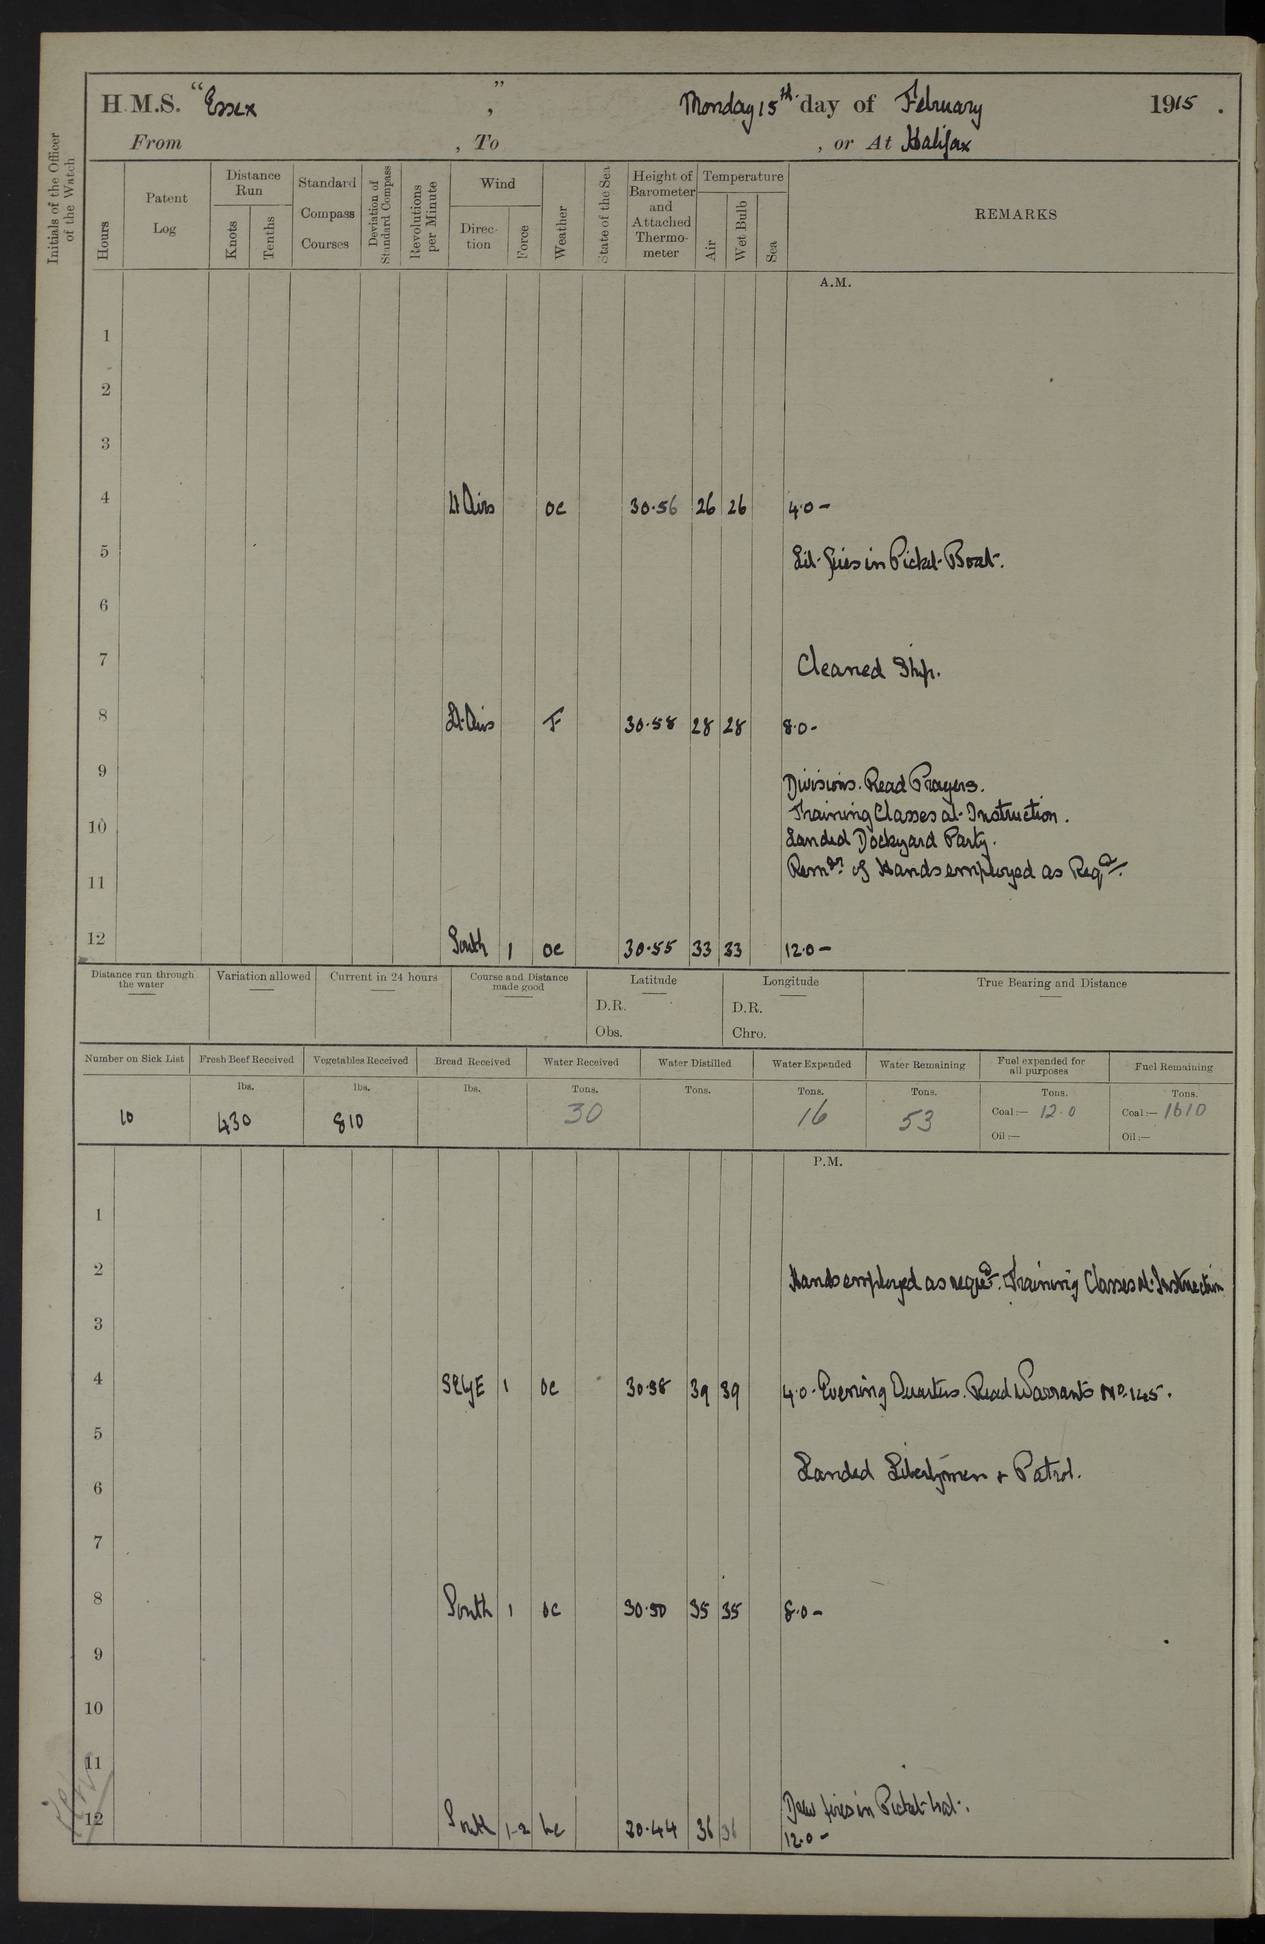 H.M.S. "Essex", Monday 15th day of February 1915.
From , To , or At Halifax
Initials of the Officer of the Watch
Hours
Patent Log
Distance Run
Knots
Tenths
Standard Compass Courses
Deviation of Standard Compass
Revolutions per Minute
Wind
Direction
Force
Weather
State of the Sea
Height of Barometer and Attached Thermometer
Temperature
Air
Wet Bulb
Sea
REMARKS
A.M.
1
2
3
4 Lt Airs oc 30.56 26 26 4.0 -
5 Lit fires in Picket Boat.
6
7 Cleaned Ship.
8 Lt. Airs F 30.58 28 28 8.0 -
9 Divisions. Read Prayers.
Training Classes at Instruction.
10 Landed Dockyard Party.
Remdr. of Hands employed as Reqd.
11
12 South 1 oc 30.55 33 33 12.0 -
Distance run through the water
Variation allowed
Current in 24 hours
Course and Distance made good
Latitude
D.R.
Obs.
Longitude
D.R.
Chro.
True Bearing and Distance
Number on Sick List
10
Fresh Beef Received
lbs.
430
Vegetables Received
lbs.
810
Bread Received
lbs.
Water Received
Tons.
30
Water Distilled
Tons.
Water Expended
Tons.
16
Water Remaining
Tons.
53
Fuel expended for all purposes
Tons.
Coal:— 12.0
Oil:—
Fuel Remaining
Tons.
Coal:— 1610
Oil:—
P.M.
1
2 Hands employed as requd. Training Classes at Instruction
3
4 1 oc 39 39 4.0. Evening Quarters. Read Warrants No. 145.
5
6 Landed Libertymen & Patrol.
7
8 South 1 oc 30.50 35 35 8.0 -
9
10
11
Drew fires in Picket bot.
12 South 1-2 30.44 36 36 12.0 -